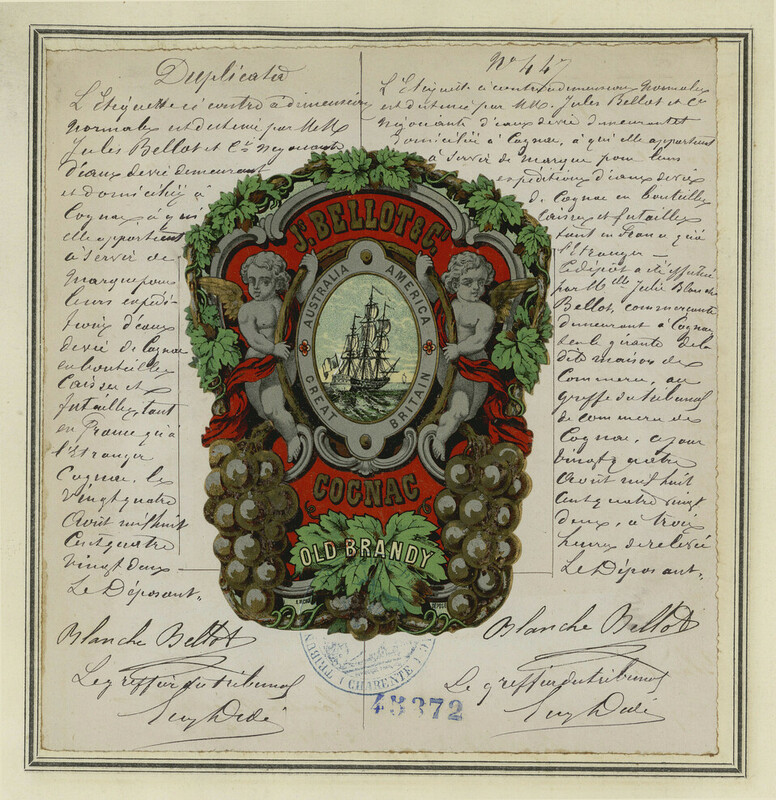 Duplicata
L'Etiquette ci contre a dimensions
normales est destinée par MM
Jules Bellot et Cie négociants
d'eaux de vie demeurant
et domiciliés à
Cognac à qui
elle appartient
à servir de
marque pour
leurs expédi-
tions d'eaux
de vie de Cognac
en bouteilles
caisses et
futailles tant
en France qu'à
l'Etranger
Cognac, le
vingt quatre
Août mil huit
cent quatre
vingt deux
Le Déposant,
Blanche Bellot
Le greffier du tribunal
No 447
L'Etiquette ci contre a dimensions normales
est destinée par MM. Jules Bellot et Cie
négociants d'eaux de vie demeurant et
domiciliés à Cognac, à qui elle appartient
à servir de marque pour leurs
expéditions d'eaux de vie
de Cognac en bouteilles
caisses et futailles
tant en France qu'à
l'Etranger —
Ce dépôt a été effectué
par Melle Julie Blanche
Bellot, commerçante
demeurant à Cognac
de la
dite maison de
commerce, au
greffe du tribunal
de commerce de
Cognac, ce jour
vingt quatre
Août mil huit
cent quatre vingt
deux, à trois
heures de relevée
Le Déposant,
Blanche Bellot
Le greffier du tribunal
Js BELLOT & Co
AUSTRALIA AMERICA
GREAT BRITAIN
COGNAC
OLD BRANDY
DÉPOSÉ
TRIBUN
(CHARENTE)
45372